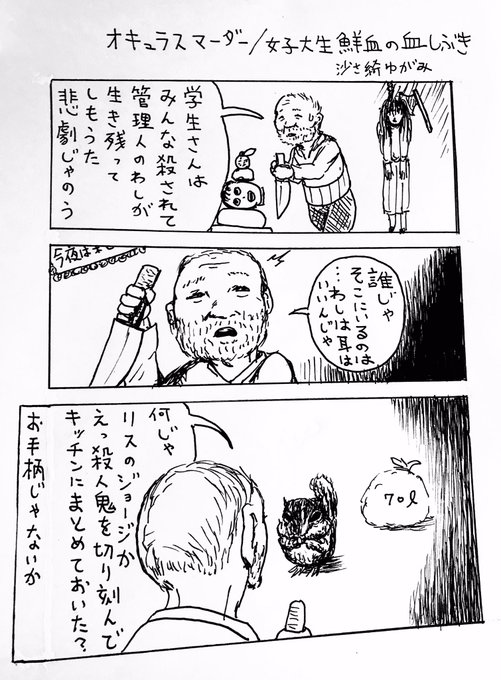 オキュラスマーダー/女子大生鮮血の血しぶき
沙さ綺ゆがみ
学生さんは
みんな殺されて
管理人のわしが
生き残って
しもうた
悲劇じゃのう
誰じゃ
そこにいるのは
…わしは耳は
いいんじゃ
今夜は
何じゃ
リスのジョージか
えっ殺人鬼を切り刻んで
キッチンにまとめておいた?
お手柄じゃないか
70ℓ